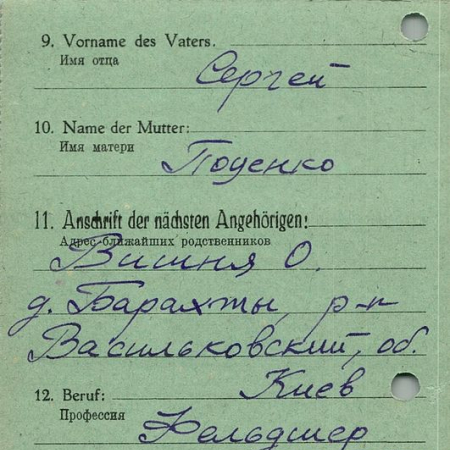 9. Vorname des Vaters.
Имя отца
Сергей
10. Name der Mutter:
Имя матери
Поценко
11. Anschrift der nächsten Angehörigen:
Адрес ближайших родственников
Вишня О.
д. Барахты, р-н
Васильковский, об.
Киев
12. Beruf:
Профессия
Фельдшер